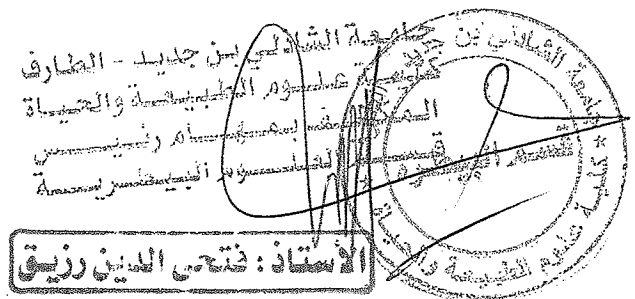 جامعة الشاذلي بن جديد - الطارف
كلية علوم الطبيعة والحياة
المكلف بمهام رئيس
قسم العلوم البيطرية
الأستاذ: فتحي الدين رزيق
جامعة الشاذلي بن جديد
* كلية علوم الطبيعة والحياة *
قسم